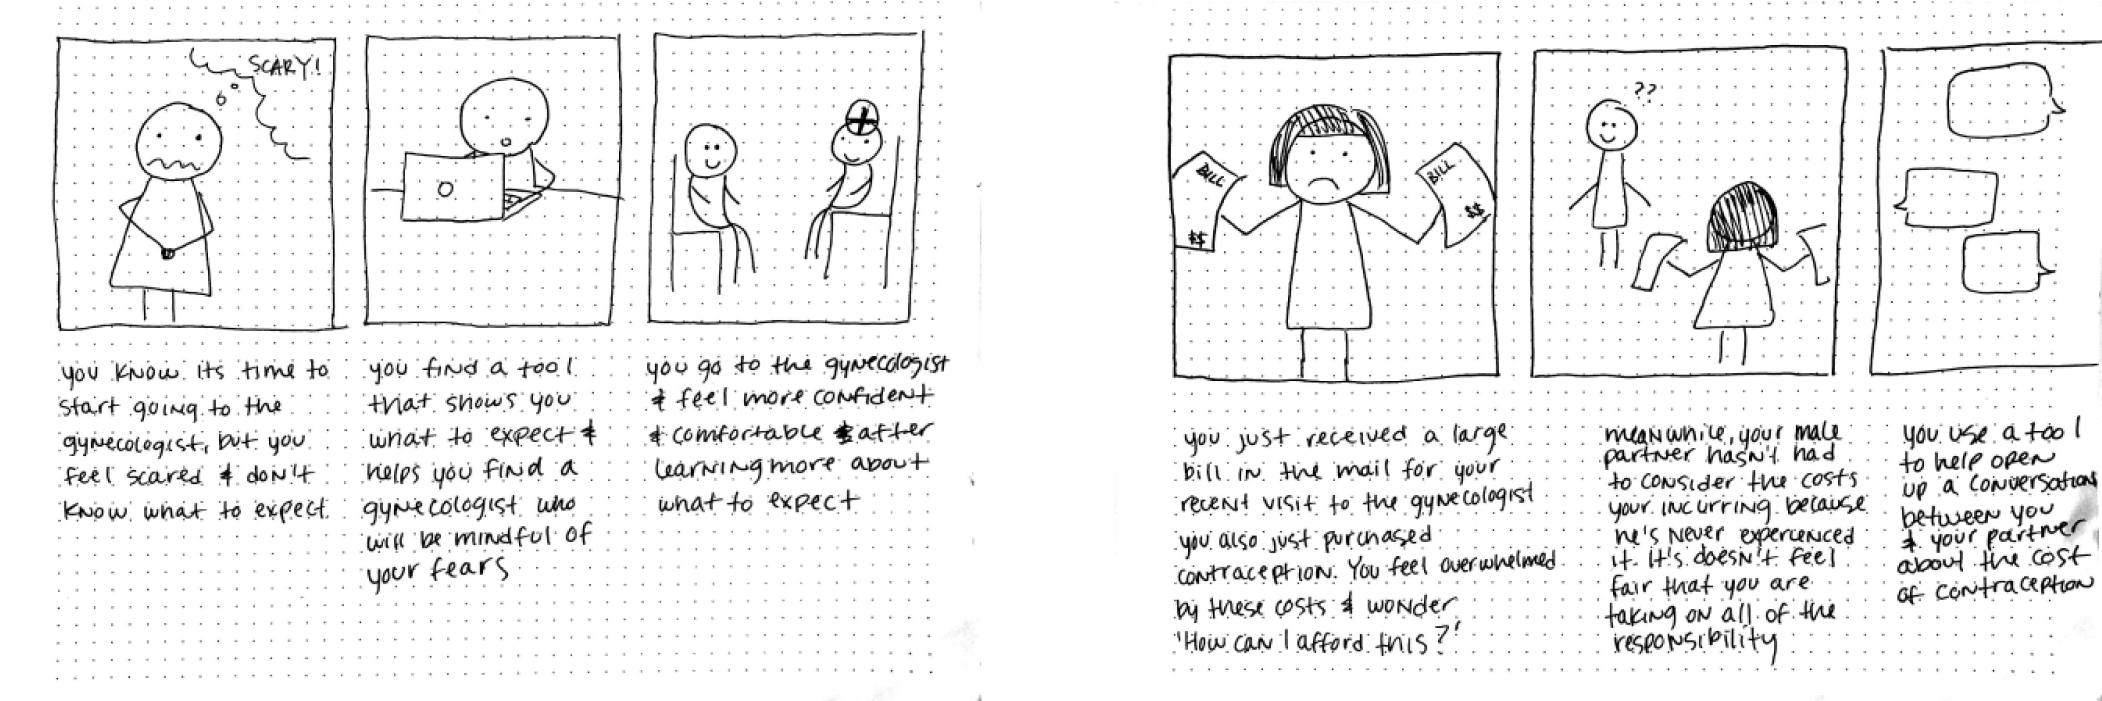 SCARY!
you know its time to
start going to the
gynecologist, but you
feel scared & don't
know what to expect
you find a tool
that shows you
what to expect &
helps you find a
gynecologist who
will be mindful of
your fears
you go to the gynecologist
& feel more confident
& comfortable after
learning more about
what to expect
BILL
$$
BILL
$$
you just received a large
bill in the mail for your
recent visit to the gynecologist
you also just purchased
contraception. You feel overwhelmed
by these costs & wonder
'How can I afford this?'
??
meanwhile, your male
partner hasn't had
to consider the costs
your incurring because
he's never experienced
it. It's doesn't feel
fair that you are
taking on all of the
responsibility
you use a tool
to help open
up a conversation
between you
& your partner
about the cost
of contraception